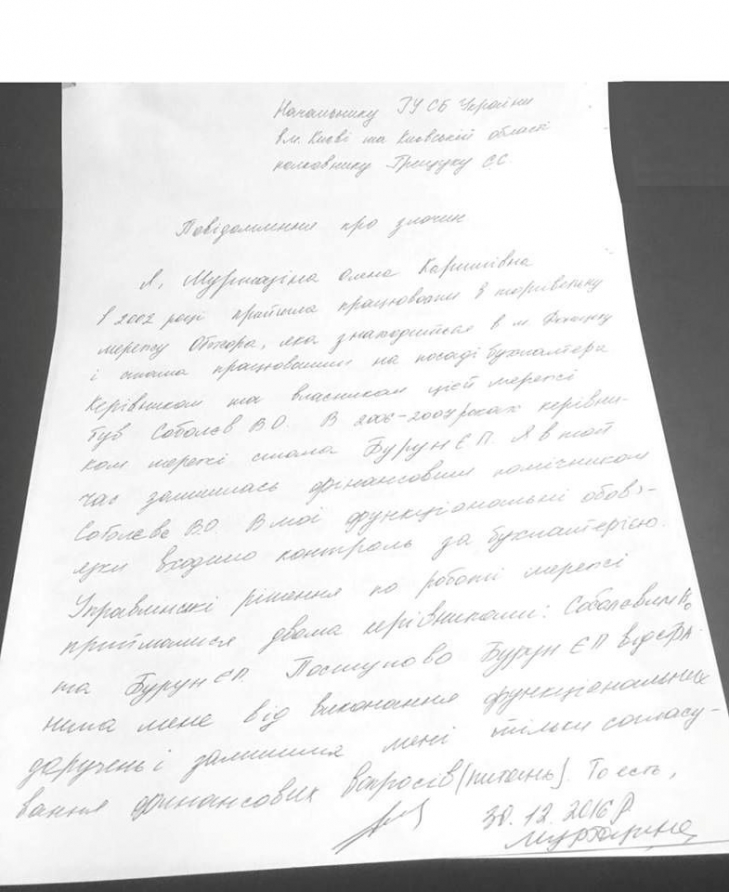 Начальнику ГУ СБ України
в м. Києві та Київській області
полковнику Грищуку С.С.
Повідомлення про злочин
Я, Муртазіна Олена Каримівна
в 2002 році прийшла працювати в торгівельну
мережу Обжора, яка знаходиться в м. Донецьку
і стала працювати на посаді бухгалтера
Керівником та власником цієї мережі
був Соболєв В.О. В 2006-2007 роках керівни-
ком мережі стала Бурун Є.П. Я в той
час залишилась фінансовим помічником
Соболєва В.О. В мої функціональні обов'-
язки входило контроль за бухгалтерією.
Управлінські рішення по роботі мережі
приймалися двома керівниками: Соболєвим ВО
та Бурун ЄП. Поступово Бурун ЄП відстра-
нила мене від виконання функціональних
доручень і залишила мені тільки согласу-
вання фінансових вопросів (питань). То есть,
30.12.2016р